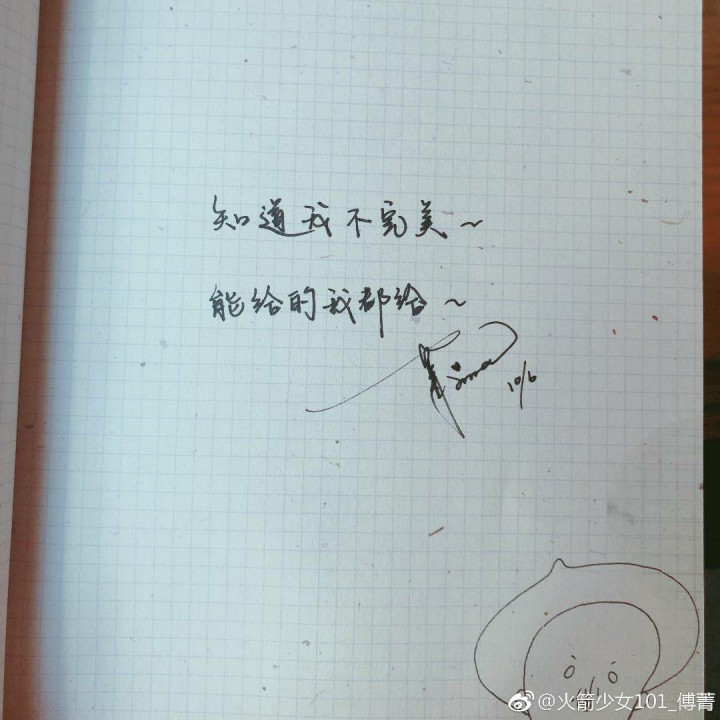 知道我不完美~
能给的我都给~
10/6
@火箭少女101_傅菁